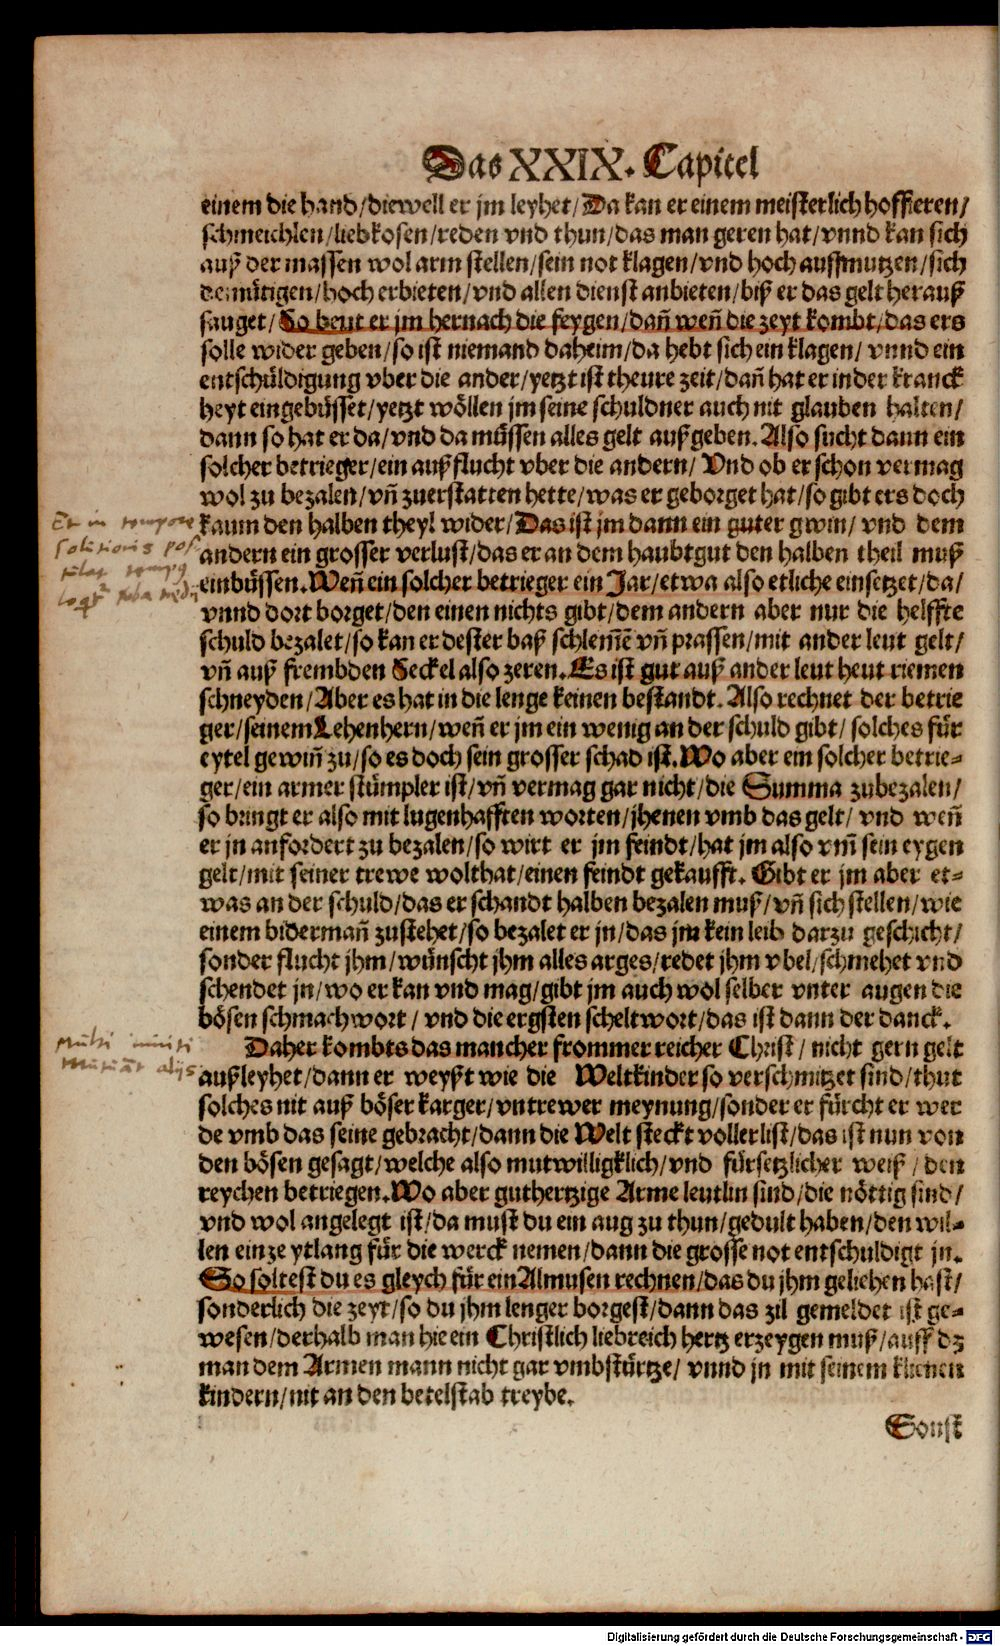 Das XXIX. Capitel
einem die hand/diewell er jm leyhet/Da kan er einem meisterlich hoffieren/
schmeichlen/liebkosen/reden vnd thun/das man geren hat/vnnd kan sich
auß der massen wol arm stellen/sein not klagen/vnd hoch auffmutzen/sich
demütigen/hoch erbieten/vnd allen dienst anbieten/biß er das gelt herauß
sauget/So beut er jm hernach die feygen/dañ weñ die zeyt kombt/das ers
solle wider geben/so ist niemand daheim/da hebt sich ein klagen/vnnd ein
entschüldigung vber die ander/yetzt ist theure zeit/dañ hat er in der kranck
heyt eingebüsset/yetzt wöllen jm seine schuldner auch nit glauben halten/
dann so hat er da/vnd da müssen alles gelt außgeben. Also sucht dann ein
solcher betrieger/ein außflucht vber die andern/Vnd ob er schon vermag
wol zu bezalen/vñ zuerstatten hette/was er geborget hat/so gibt ers doch
Et in tempore
kaum den halben theyl wider/Das ist jm dann ein guter gwin/vnd dem
solutionis
andern ein grosser verlust/das er an dem haubtgut den halben theil muß
einbüssen. Weñ ein solcher betrieger ein Jar/etwa also etliche einsetzet/da/
vnnd dort borget/den einen nichts gibt/dem andern aber nur die helffte
schuld bezalet/so kan er dester baß schlem̃ẽ vñ prassen/mit ander leut gelt/
vñ auß frembden Seckel also zeren. Es ist gut auß ander leut heut riemen
schneyden/Aber es hat in die lenge keinen bestandt. Also rechnet der betrie
ger/seinem Lehenhern/weñ er jm ein wenig an der schuld gibt/solches für
eytel gewiñ zu/so es doch sein grosser schad ist. Wo aber ein solcher betrie-
ger/ein armer stümpler ist/vñ vermag gar nicht/die Summa zubezalen/
so bringt er also mit lugenhafften worten/jhenen vmb das gelt/vnd weñ
er jn anfordert zu bezalen/so wirt er jm feindt/hat jm also vm̃ sein eygen
gelt/mit seiner trewe wolthat/einen feindt gekaufft. Gibt er jm aber et-
was an der schuld/das er schandt halben bezalen muß/vñ sich stellen/wie
einem bidermañ zustehet/so bezalet er jn/das jm kein leib darzu geschicht/
sonder flucht jhm/wünscht jhm alles arges/redet jhm vbel/schmehet vnd
schendet jn/wo er kan vnd mag/gibt jm auch wol selber vnter augen die
bösen schmachwort/vnd die ergsten scheltwort/das ist dann der danck.
Daher kombts das mancher frommer reicher Christ/nicht gern gelt
außleyhet/dann er weyßt wie die Weltkinder so verschmitzet sind/thut
solches nit auß böser karger/vntrewer meynung/sonder er fürcht er wer
de vmb das seine gebracht/dann die Welt steckt voller list/das ist nun von
den bösen gesagt/welche also mutwilligklich/vnd fürsetzlicher weiß/den
reychen betriegen. Wo aber guthertzige Arme leutlin sind/die nöttig sind/
vnd wol angelegt ist/da must du ein aug zu thun/gedult haben/den wil-
len einze ytlang für die werck nemen/dann die grosse not entschuldigt jn.
So soltest du es gleych für ein Almusen rechnen/das du jhm geliehen hast/
sonderlich die zeyt/so du jhm lenger borgest/dann das zil gemeldet ist ge-
wesen/derhalb man hie ein Christlich liebreich hertz erzeygen muß/auff dz
man dem Armen mann nicht gar vmbstürtze/vnnd jn mit seinem klienen
kindern/nit an den betelstab treybe.
Sonst
Digitalisierung gefördert durch die Deutsche Forschungsgemeinschaft - DFG